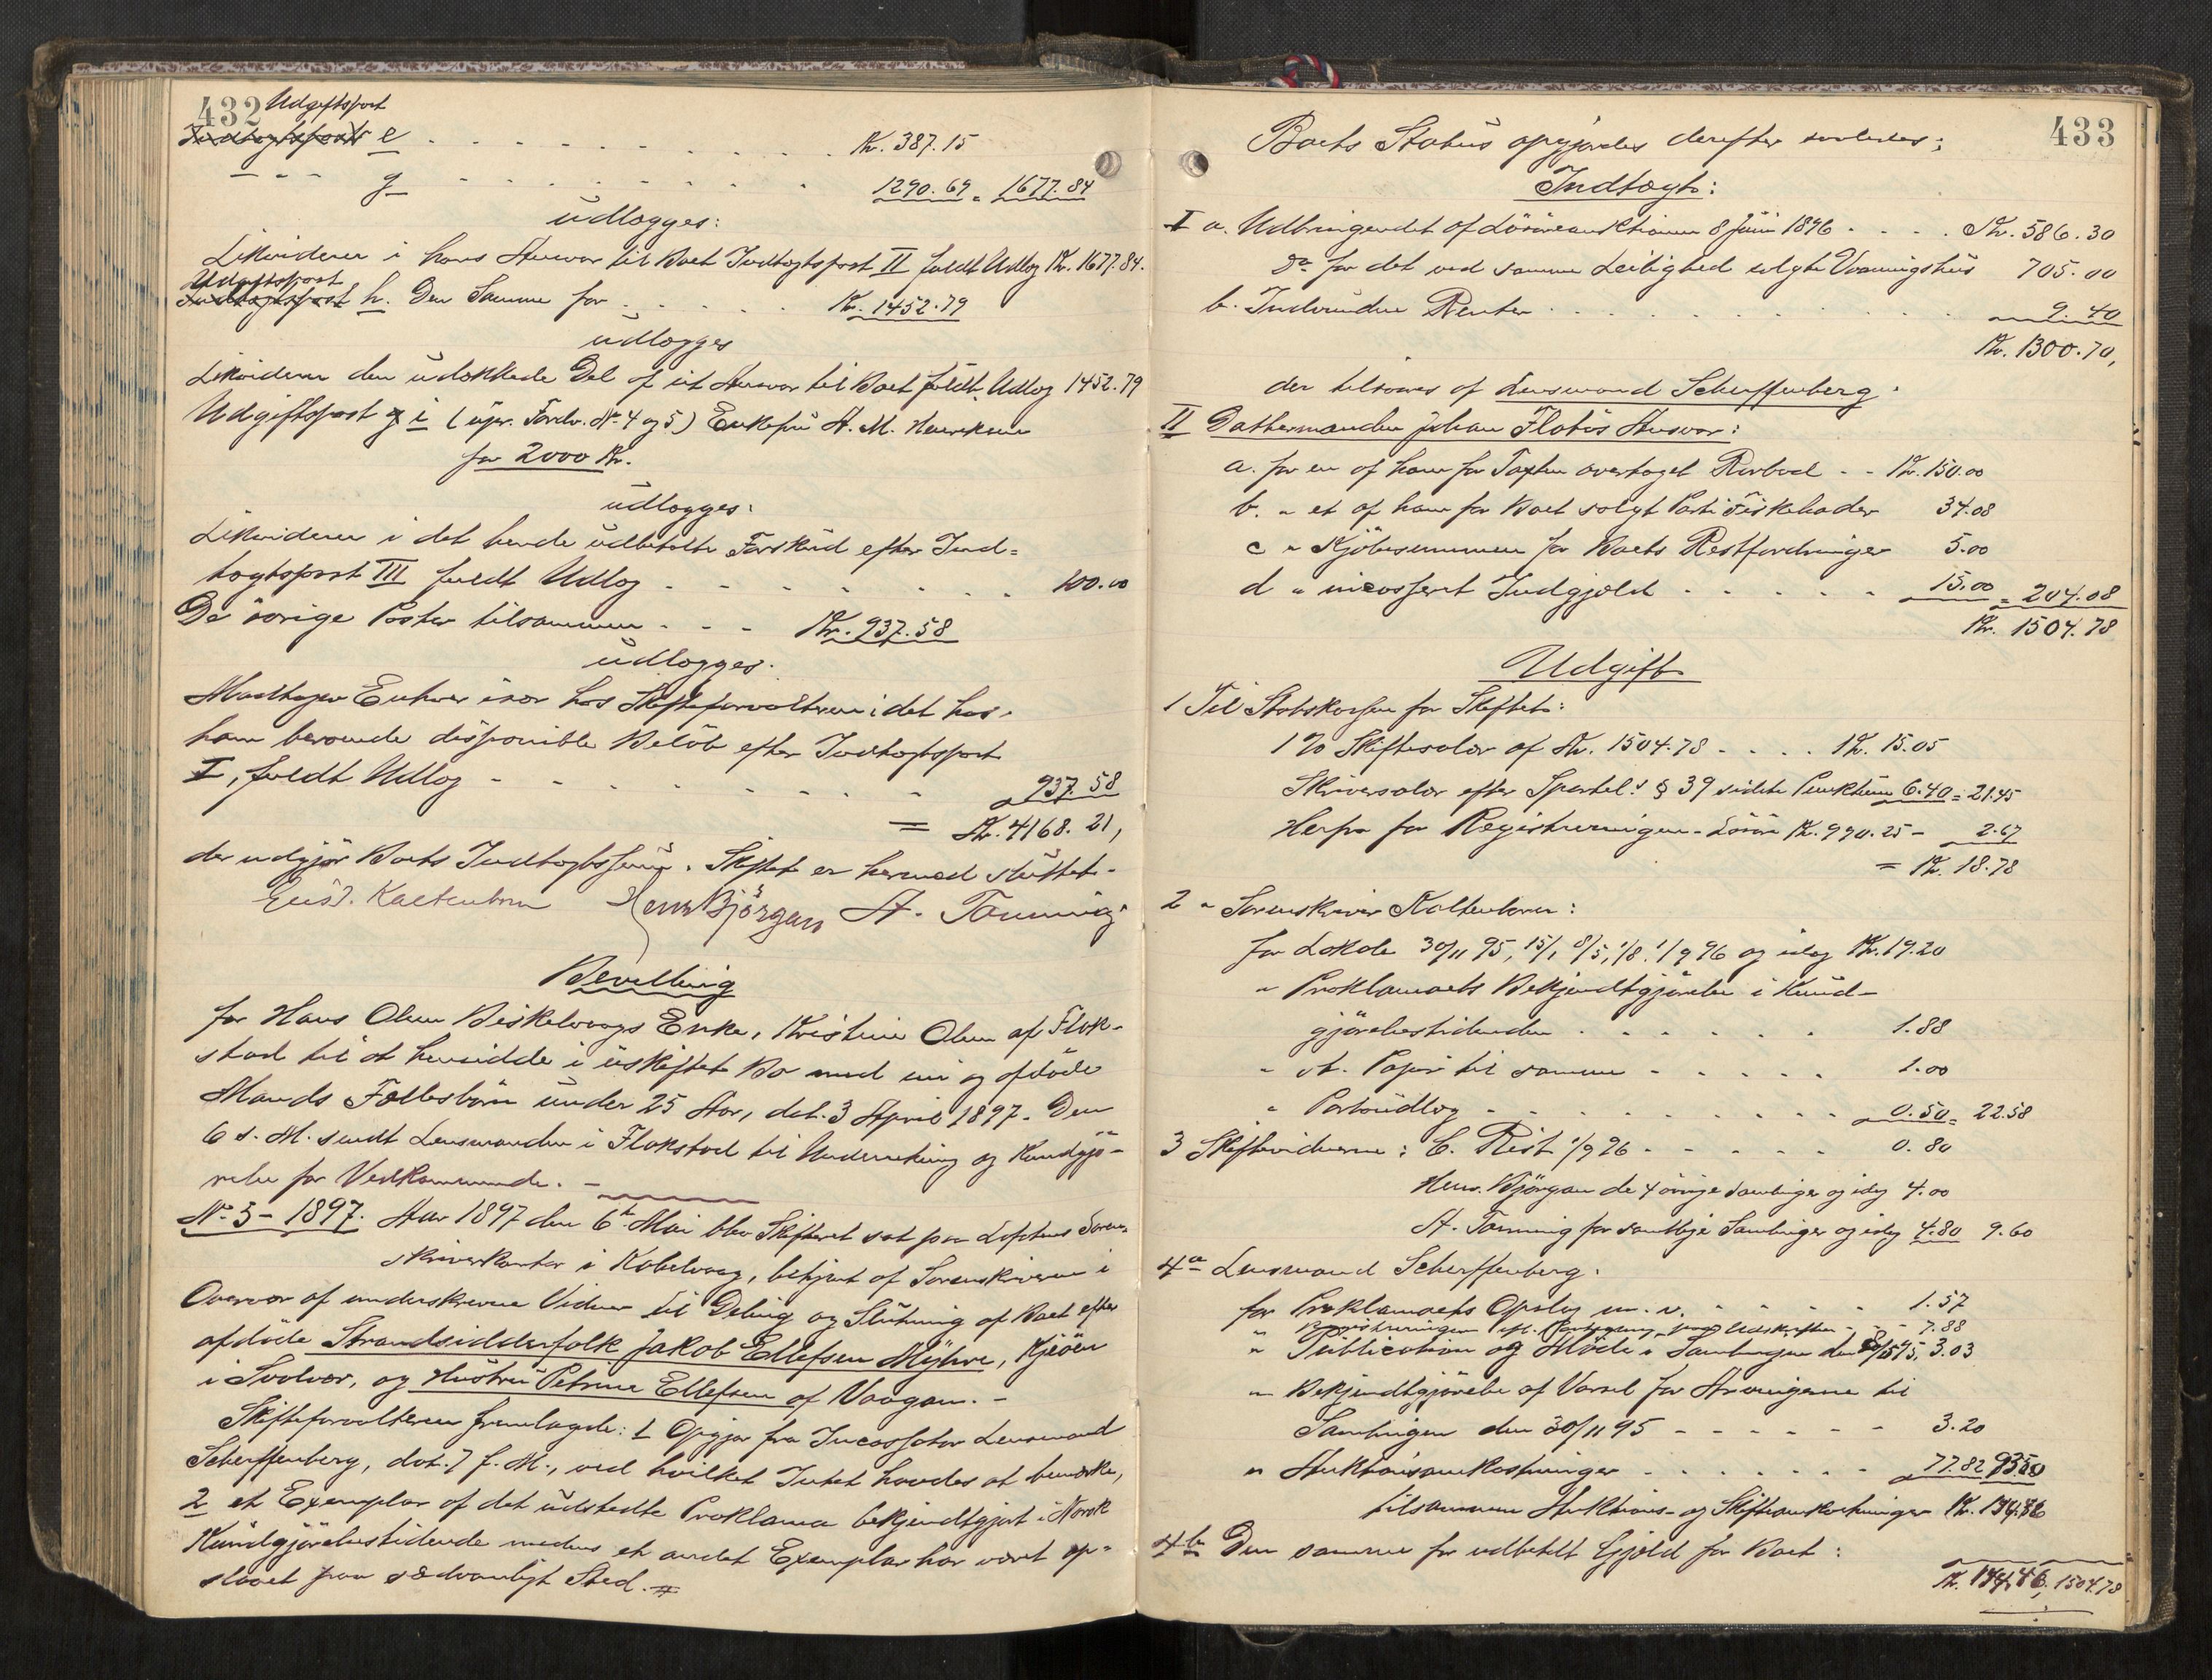 432 Udgiftspost
Indtægtspost e . . . . . . . . . . . Kr. 387.15
- - - g - - - - - - - - 1290.69 = 1677.84
udlægges:
Likviderer i hans Ansvar til Boet Indtægtspost II fuldt Udlæg Kr. 1677.84.
Udgiftspost
Indtægtspost h. Den Samme for . . . . . Kr. 1452.79
udlægges
Likviderer den udækkede Del af sit Ansvar til Boet fuldt Udlæg 1452.79
Udgiftspost g i (opr. Fordr. No 4 og 5) Enkefru A. M.
for 2000 Kr.
udlægges:
Likviderer i det hende udbetalte Forskud efter Ind=
tægtspost III fuldt Udlæg - - - - - - - 100.00
De øvrige Poster tilsammen - - - Kr. 937.58
udlægges.
Modtager Enhver især hos Skifteforvalteren i det hos
ham beroende disponible Beløb efter Indtægtspost
I, fuldt Udlæg - - - - - - - - 937.58
= Kr. 4168.21,
der udgjør Boets Indtægtssum. Skiftet er hermed sluttet.-
Kaltenborn Henr Bjørgan A. Tønning
Bevilling
for Hans Olsen Biskelvaags Enke, Kristine Olsen af Flak-
stad til at hensidde i uskiftet Bo med sin og afdøde
Mands Fællesbørn under 25 Aar, dat. 3 April 1897. Den
6 s. M. sendt Lensmanden i Flakstad til Underretning og Kundgjø-
relse for Vedkommende. -
No 3 - 1897. Aar 1897 den 6te Mai blev Skifteret sat paa Lofotens Soren-
skriverkontor i Kabelvaag, betjent af Sorenskriveren i
Overvær af underskrevne Vidner til Deling og Slutning af Boet efter
afdøde Strandsidderfolk Jakob Ellefsen Myhre, Kjeøen
i Svolvær, og Hustru Petrine Ellefsen af Vaagan. -
Skifteforvalteren fremlagde: 1 Opgjør fra Incassator Lensmand
Scherffenberg, dat. 7 f. M., ved hvilket Intet havdes at bemærke,
2 et Exemplar af det udstedte Proklama bekjendtgjort i Norsk
Kundgjørelsestidende medens et andet Exemplar har været op=
slaaet paa sædvanligt Sted.
433
Boets Status opgjordes derefter saaledes;
Indtægt:
I a. Udbringendet af Løsøreauktionen 8 Juni 1896 . . . . Kr. 586.30
Do for det ved samme Leilighed solgte Vaaningshus 705.00
b. Indvundne Renter . . . . . . . . . . 9.40
Kr. 1300.70,
der tilsvares af Lensmand Scherffenberg.
II Dattermanden Johan Flatøs Ansvar:
a. for en af ham for Taxten overtaget Rorbod - - Kr. 150.00
b. " et af ham for Boet solgt Parti Fiskehoder 34.08
c " Kjøbesummen for Boets Restfordringer 5.00
d " incasseret Indgjæld . . . . . . 15.00 = 204.08
Kr. 1504.78
Udgift
1 Til Statskassen for Skiftet:
1% Skiftesalær af Kr. 1504.78 . . . . Kr. 15.05
Skriversalær efter Sportel. § 39 sidste Punktum 6.40 = 21.45
Herfra for Registreringen - Løsøre Kr. 990.25 - 2.67
= Kr. 18.78
2 " Sorenskriver Kaltenborn:
for Lokale 30/11 95, 15/1, 8/5, 1/8. 1/9 96 og idag Kr. 19.20
" Proklamaets Bekjendtgjørelse i Kund-
gjørelsestidenden . . . . . . . 1.88
" st. Papir til samme - - - - - 1.00
" Portoudlæg - - - - - - - - - - 0.50 = 22.58
3 Skiftevidnerne: C. Rist 1/9 96 - - - - - 0.80
Henr. Bjørgan de 4 øvrige Samlinger og idag 4.00
A. Tønning for samtlige Samlinger og idag 4.80 9.60
4a Lensmand Scherffenberg.
for Proklamaets Opslag m. v. - - - - - 1.57
" Registreringen - - 7.88
" Publication og Møde i Samlingen den 8/5 95, 3.03
" Bekjendtgjørelse af Varsel for Arvingerne til
Samlingen den 30/11 95 - - - - - - 3.20
" Auktionsomkostninger - . . . . . - 77.82 93.50
tilsammen Auktions- og Skifteomkostninger Kr. 144.46
4b Den samme for udbetalt Gjæld for Boet:
Kr. 144.46, 1504.78